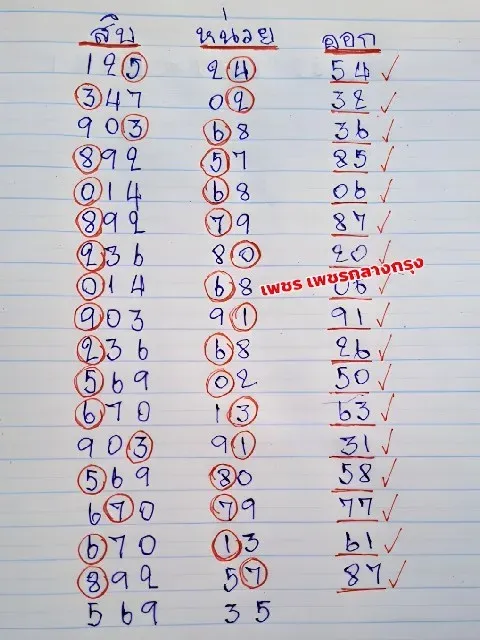 สิบ หน่วย ออก
125 24 54 ✓
347 02 32 ✓
903 68 36 ✓
892 57 85 ✓
014 68 06 ✓
892 79 87 ✓
236 80 20 ✓
014 68 06 ✓
เพชร เพชรกลางกรุง
903 91 91 ✓
236 68 26 ✓
569 02 50 ✓
670 13 63 ✓
903 91 31 ✓
569 80 58 ✓
670 79 77 ✓
670 13 61 ✓
892 57 87 ✓
569 35